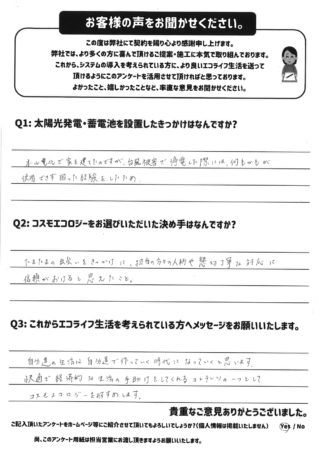 お客様の声をお聞かせください。
この度は弊社にて契約を賜り心より感謝申し上げます。
弊社では、より多くの方に喜んで頂けるご提案・施工に本気で取り組んでおります。
これから、システムの導入を考えられている方に、より良いエコライフ生活を送って
頂けるようにこのアンケートを活用させて頂ければと思っております。
よかったこと、嬉しかったことなど、率直な意見をお聞かせください。
Q1: 太陽光発電・蓄電池を設置したきっかけはなんですか?
オール電化で家を建てたのですが、台風被害で停電した際には、何もかもが
使用できず困った経験をしたため
Q2: コスモエコロジーをお選びいただいた決め手はなんですか?
たまたまの出会いをきっかけに、担当の方々の人柄や懇切丁寧な対応に
信頼がおけると思えたこと。
Q3: これからエコライフ生活を考えられている方へメッセージをお願いいたします。
自分達の生活は自分達で作っていく時代になっていくと思います。
快適で経済的な生活の手助けとしてくれるコンテンツの一つとして
コスモエコロジーをおすすめします。
貴重なご意見ありがとうございました。
ご記入頂いたアンケートをホームページ等にご紹介させて頂いてもよろしいでしょうか?(個人情報は掲載いたしません) Yes / No
尚、このアンケート用紙は担当営業にお渡し頂きますようお願いいたします。